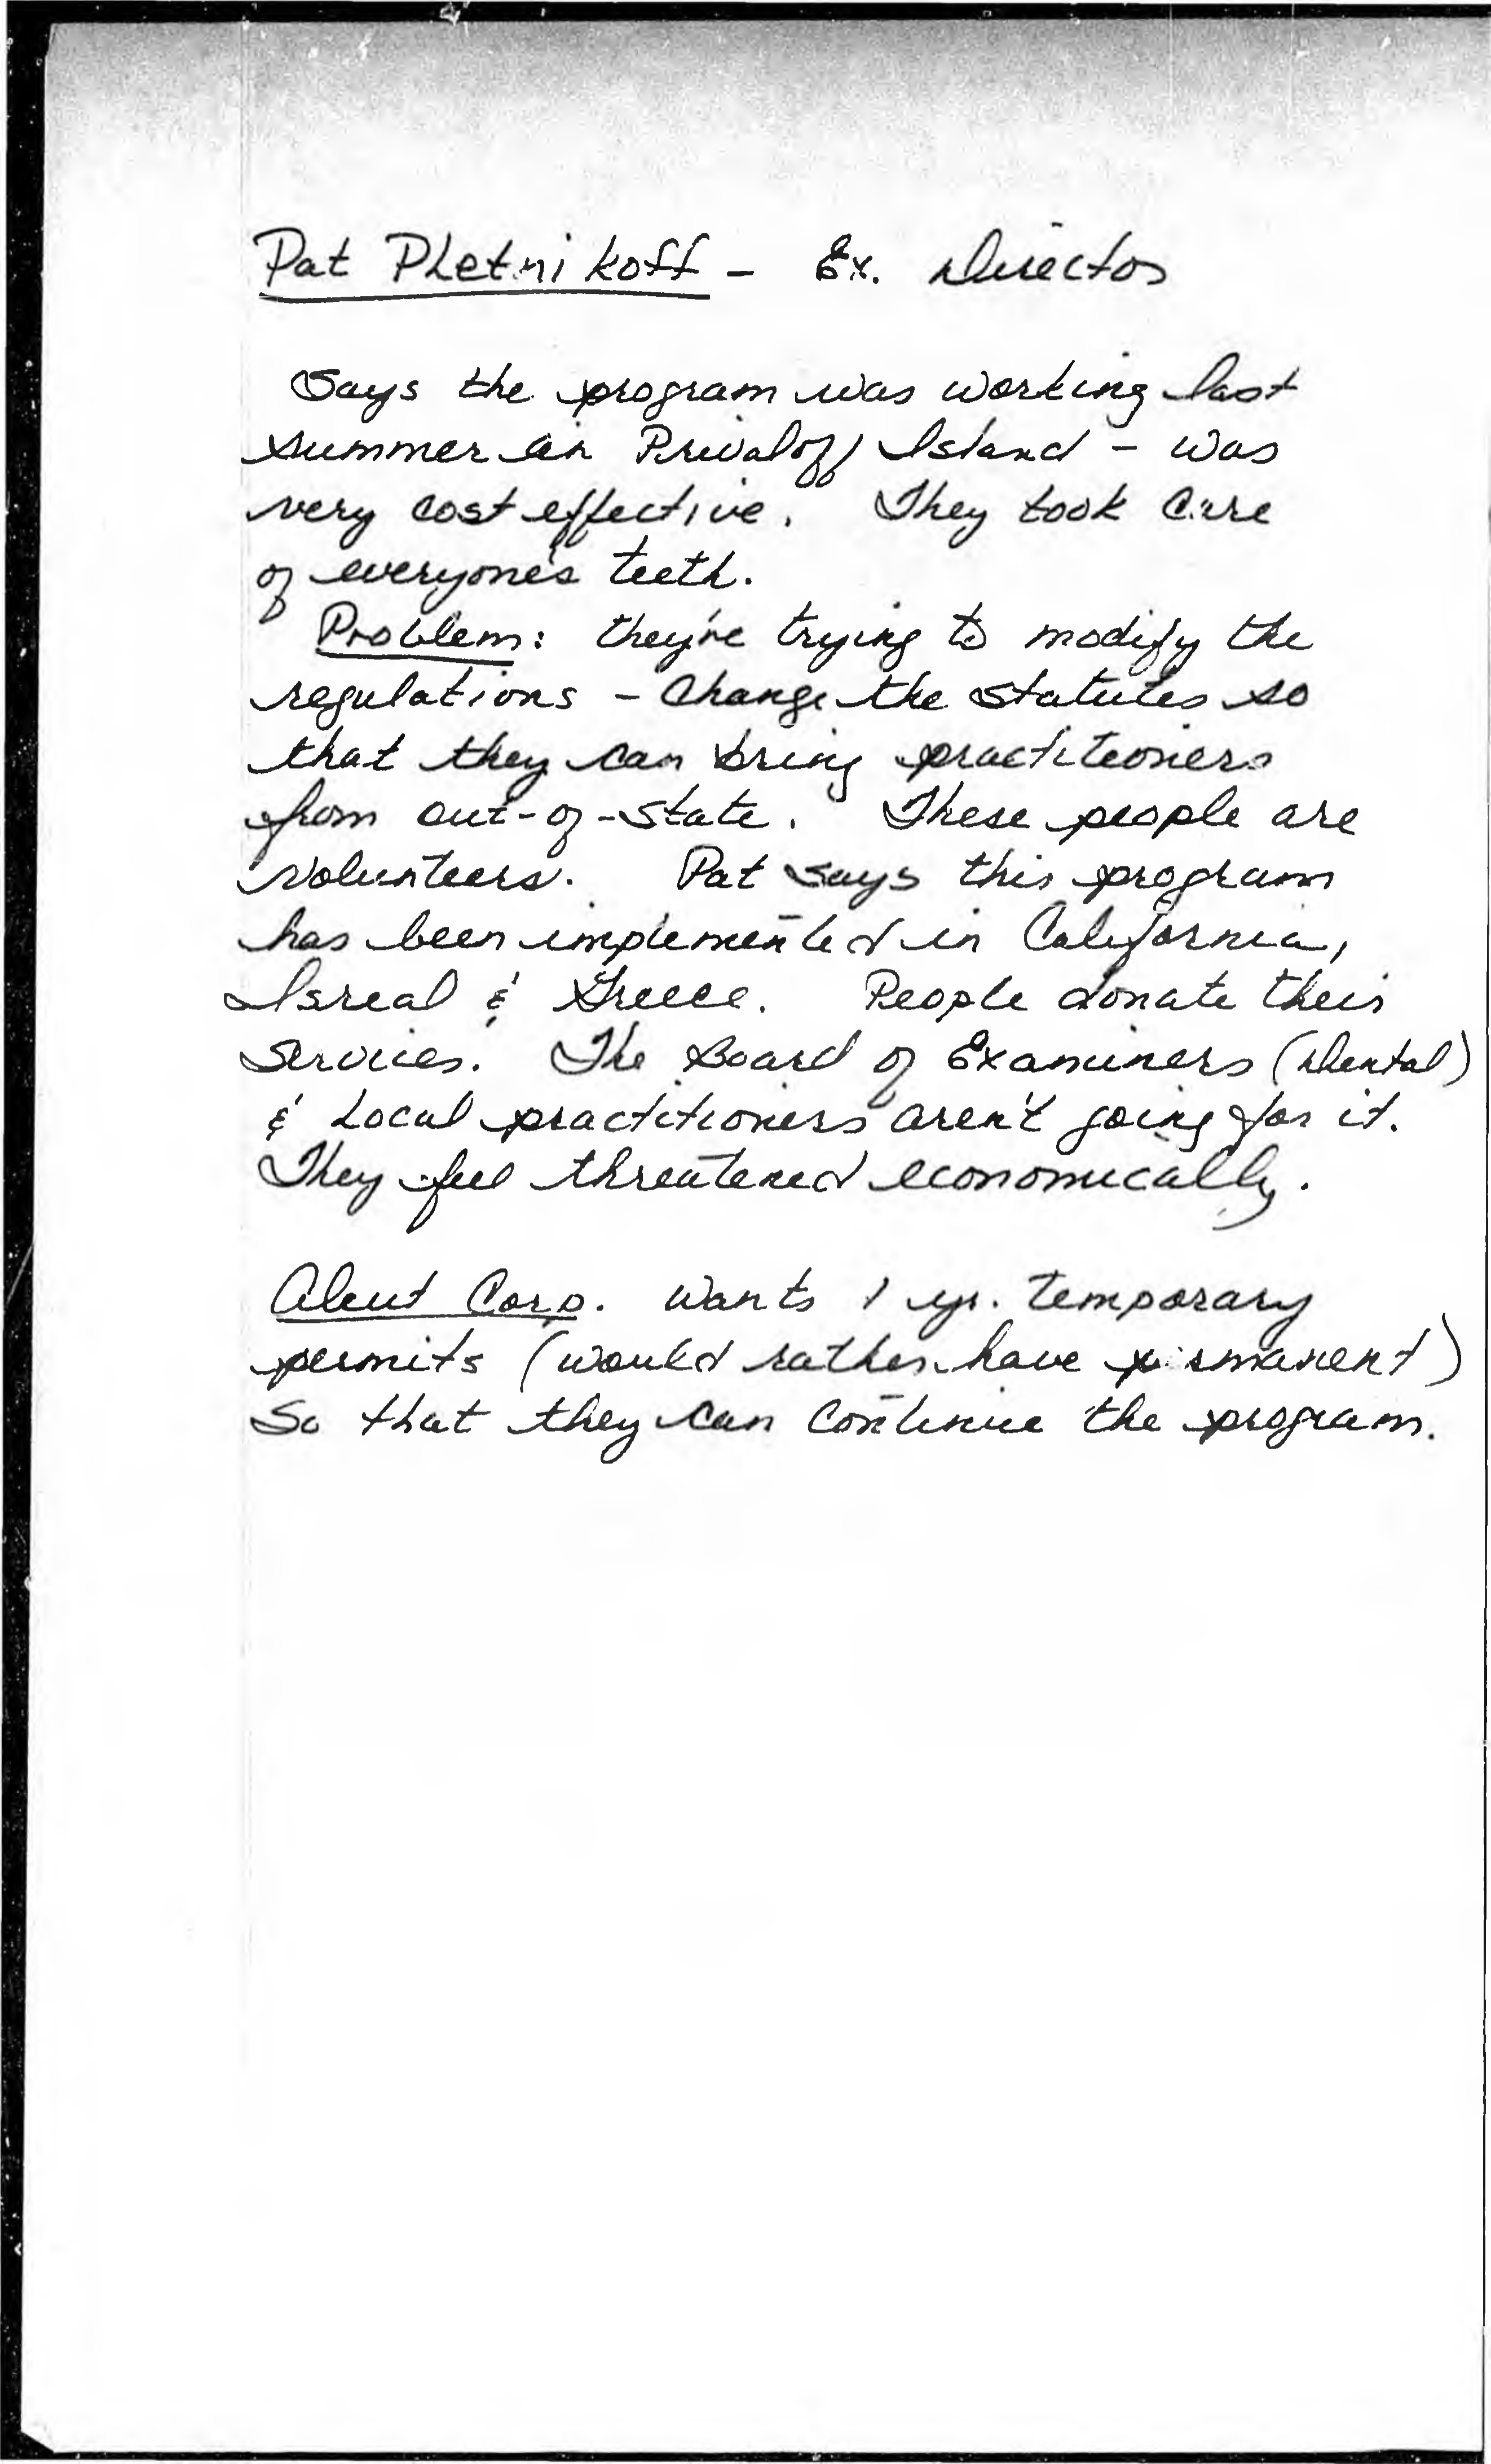 Pat Pletnikoff - Ex. Director
Says the program was working last
summer on Privaloff Island - was
very cost effective. They took care
of everyone's teeth.
Problem: they're trying to modify the
regulations - Change the statutes so
that they can bring practitioners
from out-of-state. These people are
volunteers. Pat says this program
has been implemented in California,
Isreal & Greece. People donate their
services. The Board of Examiners (Dental)
& Local practitioners aren't going for it.
They feel threatened economically.
Aleut Corp. wants 1 yr. temporary
permits (would rather have permanent)
So that they can continue the program.